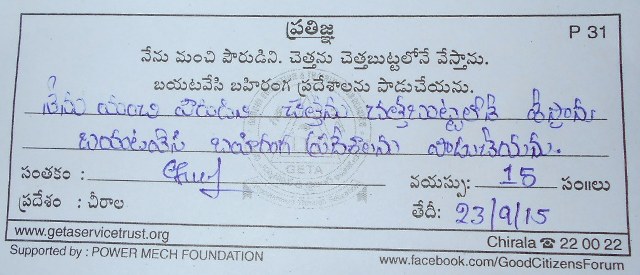 ప్రతిజ్ఞ
P 31
నేను మంచి పౌరుడిని. చెత్తను చెత్తబుట్టలోనే వేస్తాను.
బయటవేసి బహిరంగ ప్రదేశాలను పాడుచేయను.
నేను మంచి పౌరుడిని చెత్తను చెత్తబుట్టలోనే వేస్తాను
బయటవేసి బహిరంగ ప్రదేశాలను పాడుచేయను.
సంతకం :
వయస్సు: 15 సం॥లు
ప్రదేశం : చీరాల
తేదీ: 23/9/15
GETA
www.getaservicetrust.org
Chirala ☎ 22 00 22
Supported by : POWER MECH FOUNDATION
www.facebook.com/GoodCitizensForum